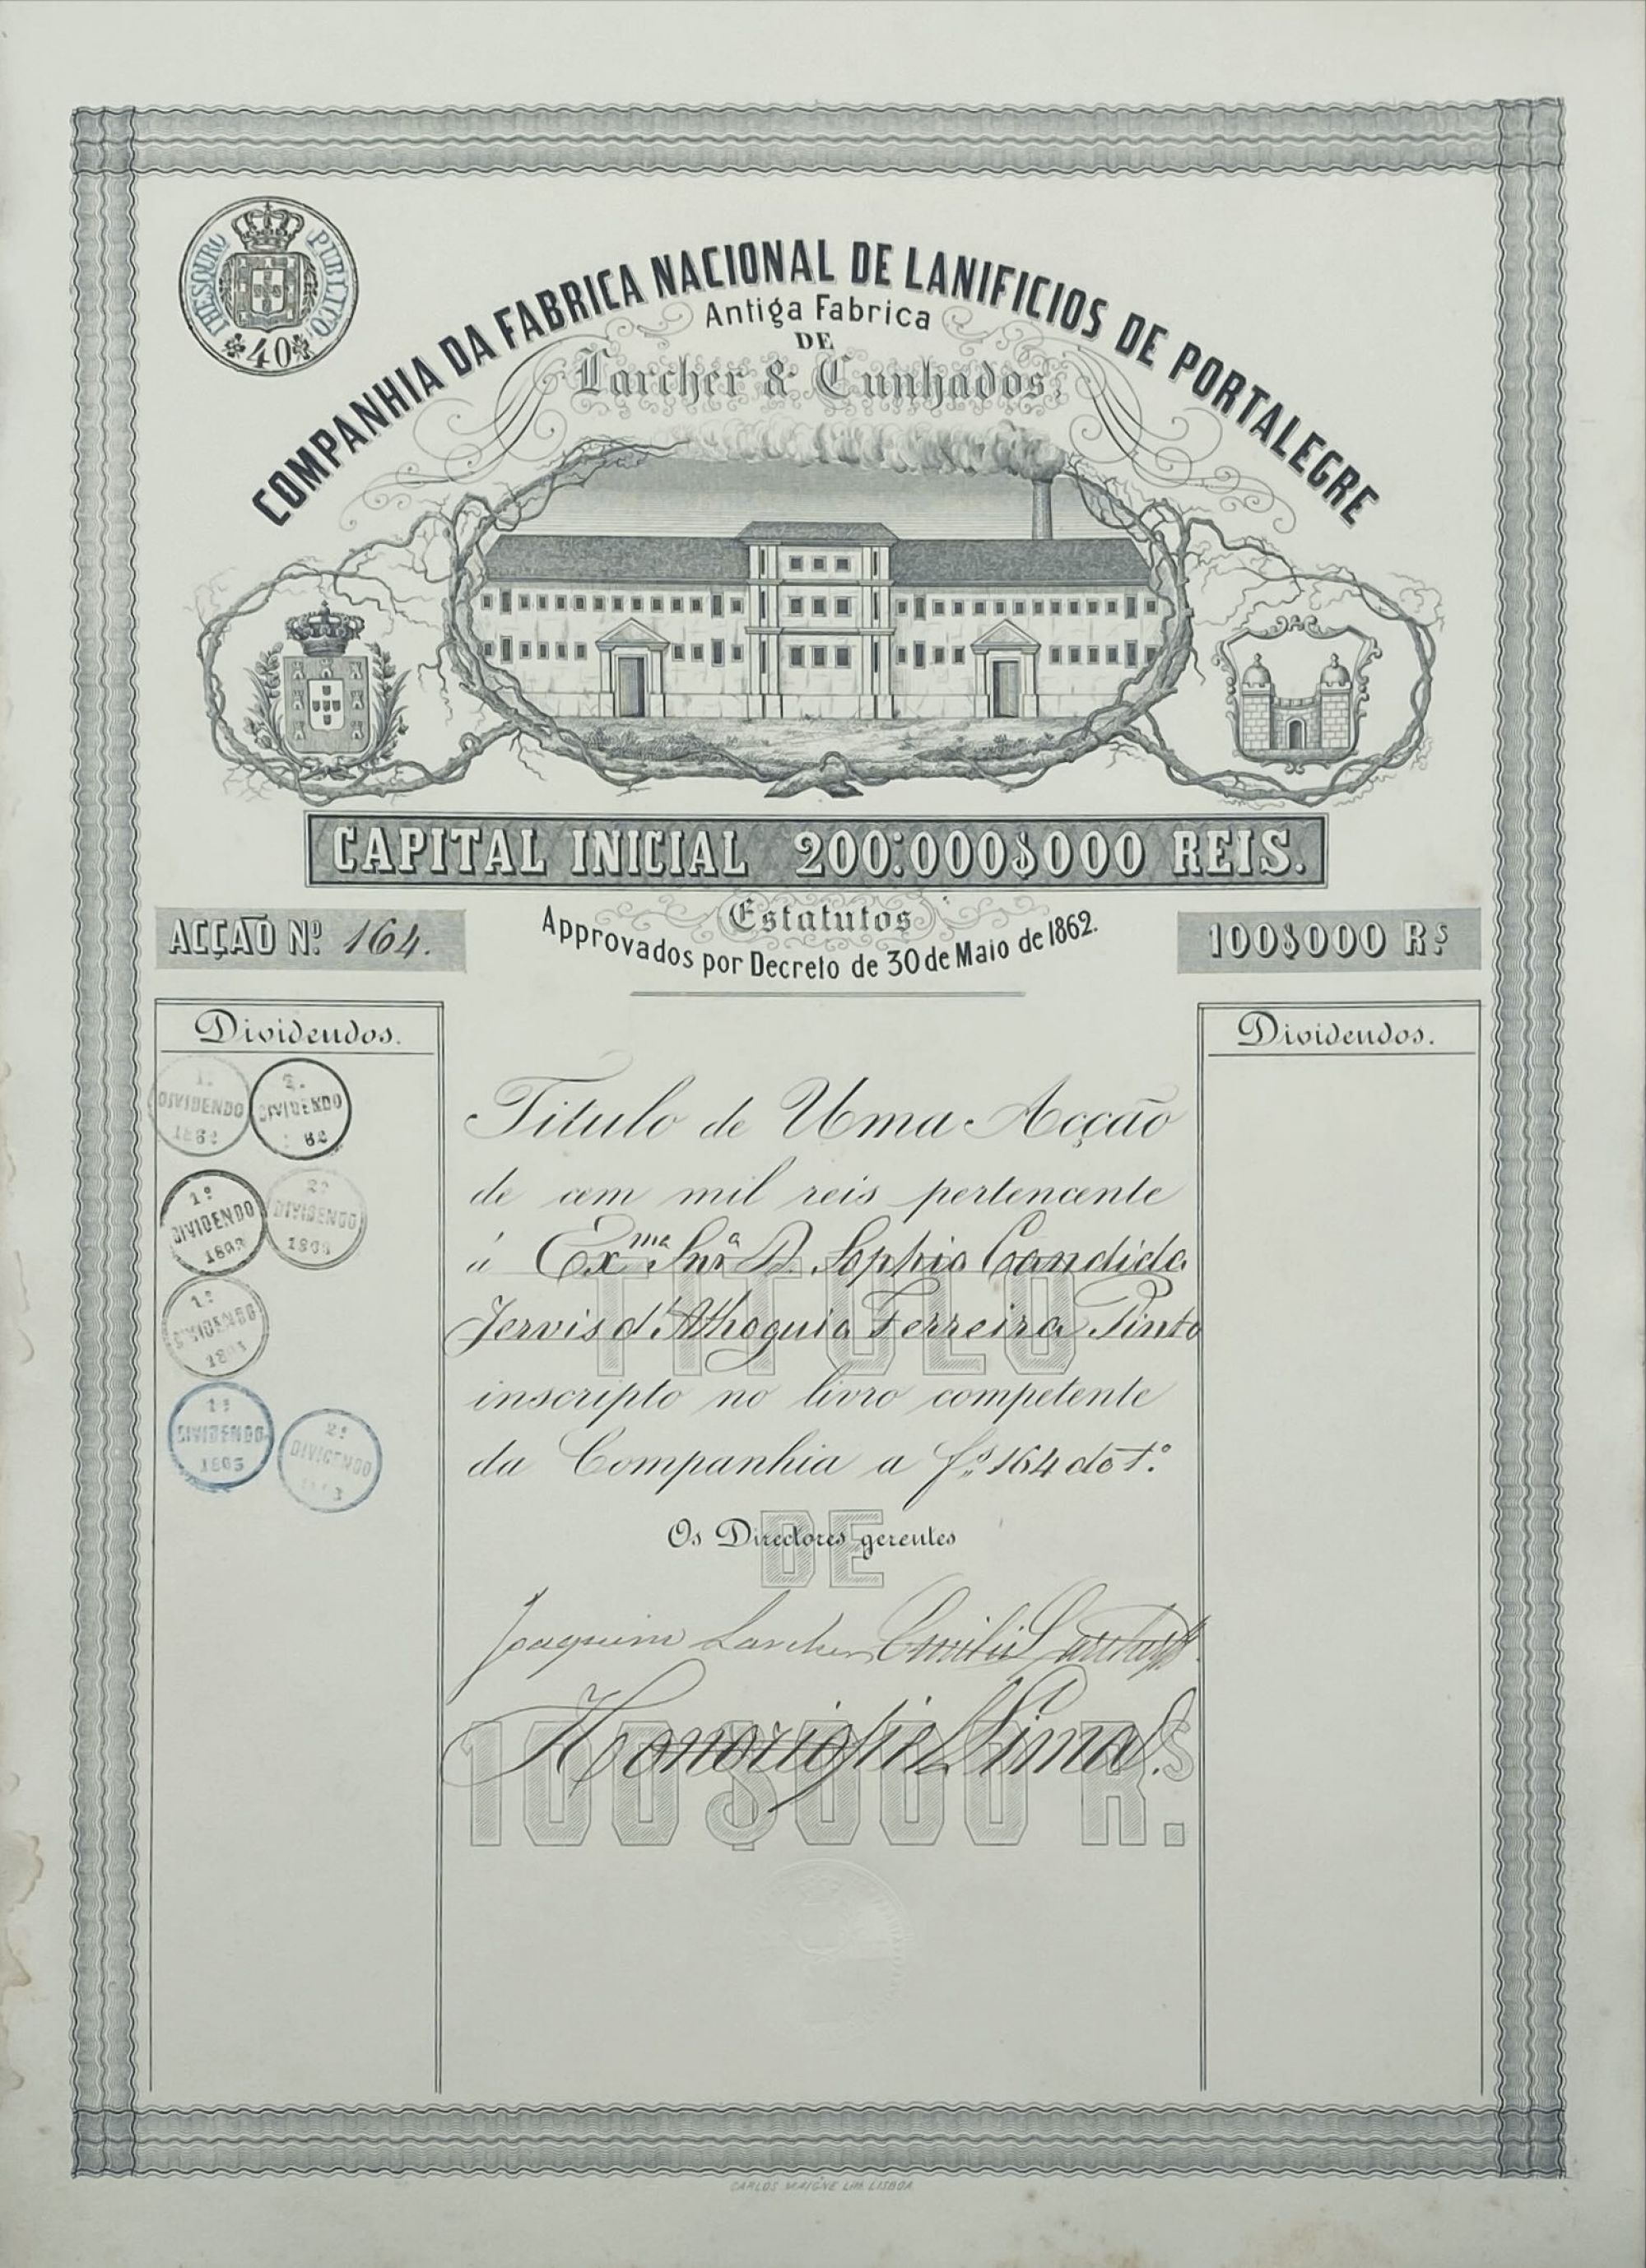 THESOURO PUBLICO
40
COMPANHIA DA FABRICA NACIONAL DE LANIFICIOS DE PORTALEGRE
Antiga Fabrica
DE
Larcher & Cunhados,
CAPITAL INICIAL 200:000$000 REIS.
Estatutos
Approvados por Decreto de 30 de Maio de 1862.
ACÇÃO Nº 164.
100$000 Rs
Dividendos.
Dividendos.
1º DIVIDENDO
2º DIVIDENDO
1º DIVIDENDO 1863
2º DIVIDENDO
1º DIVIDENDO
1º DIVIDENDO 1865
2º DIVIDENDO
Titulo de Uma Acção
de cem mil reis pertencente
á Exma Snra D. Sophia Candida
Jervis d'Athoguia Ferreira Pinto
inscripto no livro competente
da Companhia a fs 164 do 1º.
Os Directores gerentes
Joaquim Larcher Emilio Larcher
Honorio Lima
TITULO
DE
100$000 Rs.
CARLOS MAIGNE LITH. LISBOA